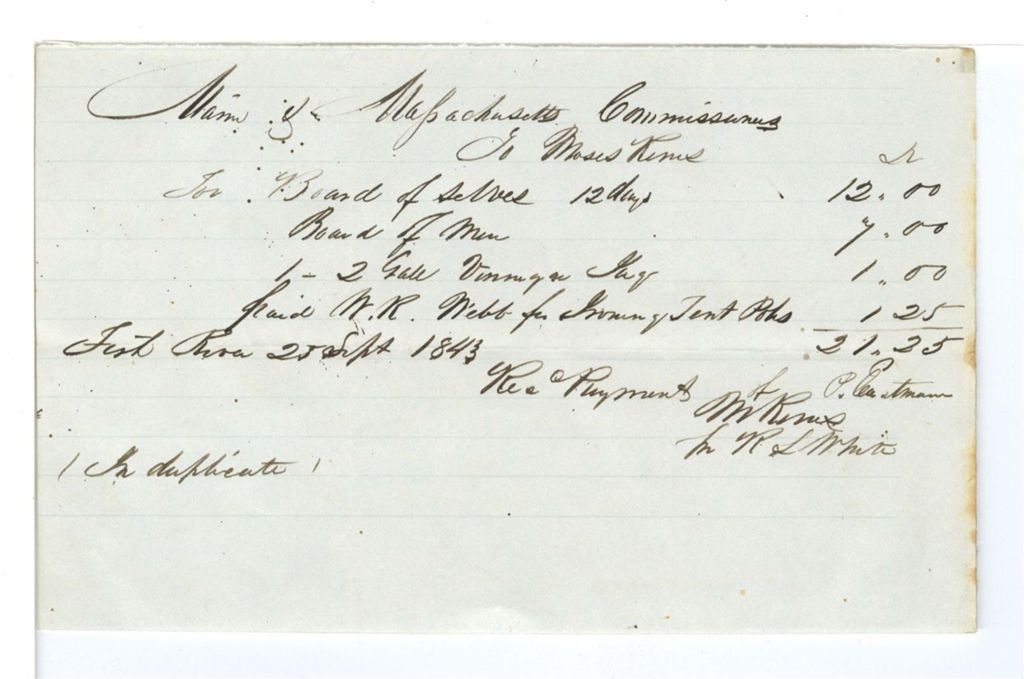 Maine & Massachusetts Commissioners
To Moses Kenus Dr
For Board of selves 12 days 12.00
Board of Men 7.00
1 - 2 Gall Vinnegar 1.00
paid W. R. Webb for Ironing Tent Poles 1 25
Fish River 25 Sept 1843 21.25
Rec Payment of P. Eastman
M Kenus
pr R S White
( In duplicate )